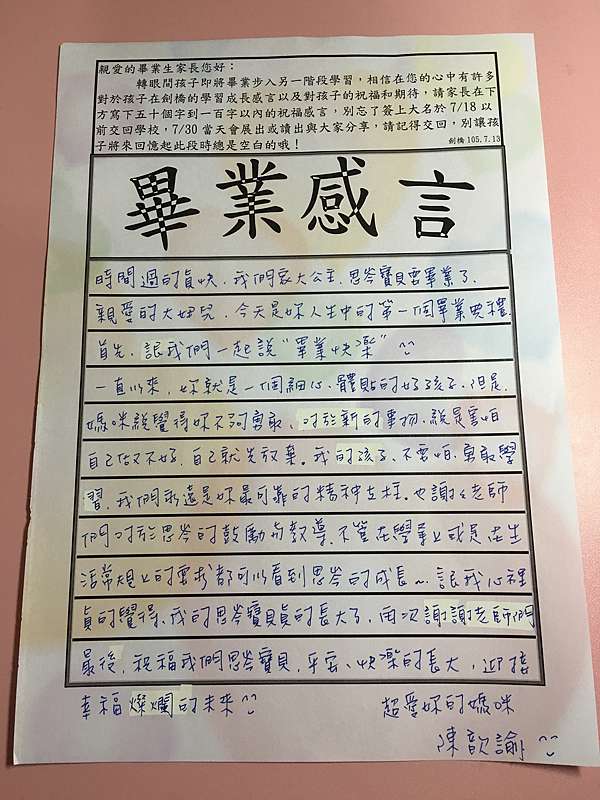 親愛的畢業生家長您好：
轉眼間孩子即將畢業步入另一階段學習，相信在您的心中有許多
對於孩子在劍橋的學習成長感言以及對孩子的祝福和期待，請家長在下
方寫下五十個字到一百字以內的祝福感言，別忘了簽上大名於 7/18 以
前交回學校，7/30 當天會展出或讀出與大家分享，請記得交回，別讓孩
子將來回憶起此段時總是空白的哦！
劍橋 105.7.13
畢業感言
時間過的真快，我們家大公主，思岑寶貝要畢業了，
親愛的大妞兒，今天是妳人生中的第一個畢業典禮
首先，讓我們一起說"畢業快樂" ^^
一直以來，妳就是一個細心、體貼的好孩子，但是，
媽咪總覺得妳不夠勇敢，對於新的事物，總是害怕
自己做不好，自己就先放棄。我的孩子、不要怕，勇敢學
習，我們永遠是妳最可靠的精神支柱。也謝謝老師
們對於思岑的鼓勵與教導，不管在學業上或是在生
活常規上的要求都可以看到思岑的成長~ 讓我心裡
真的覺得、我的思岑寶貝真的長大了，再次謝謝老師們
最後，祝福我們思岑寶貝，平安、快樂的長大，迎接
幸福燦爛的未來^^
超愛妳的媽咪
陳歆諭 ^^